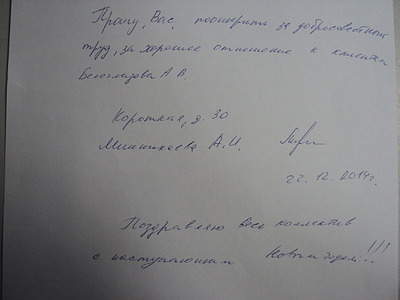 Прошу Вас, поощрить за добросовестный
труд, за хорошее отношение к клиентам
Белоглазова А.В.
Короткая, д. 30
А.И.
22.12.2014г.
Поздравляю весь коллектив
с наступающим Новым годом!!!